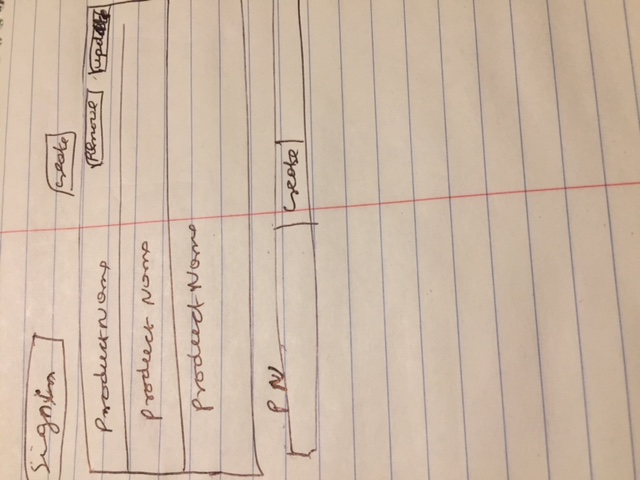 Signin
create
ProductName Remove update
Product Name
Product Name
PN
create